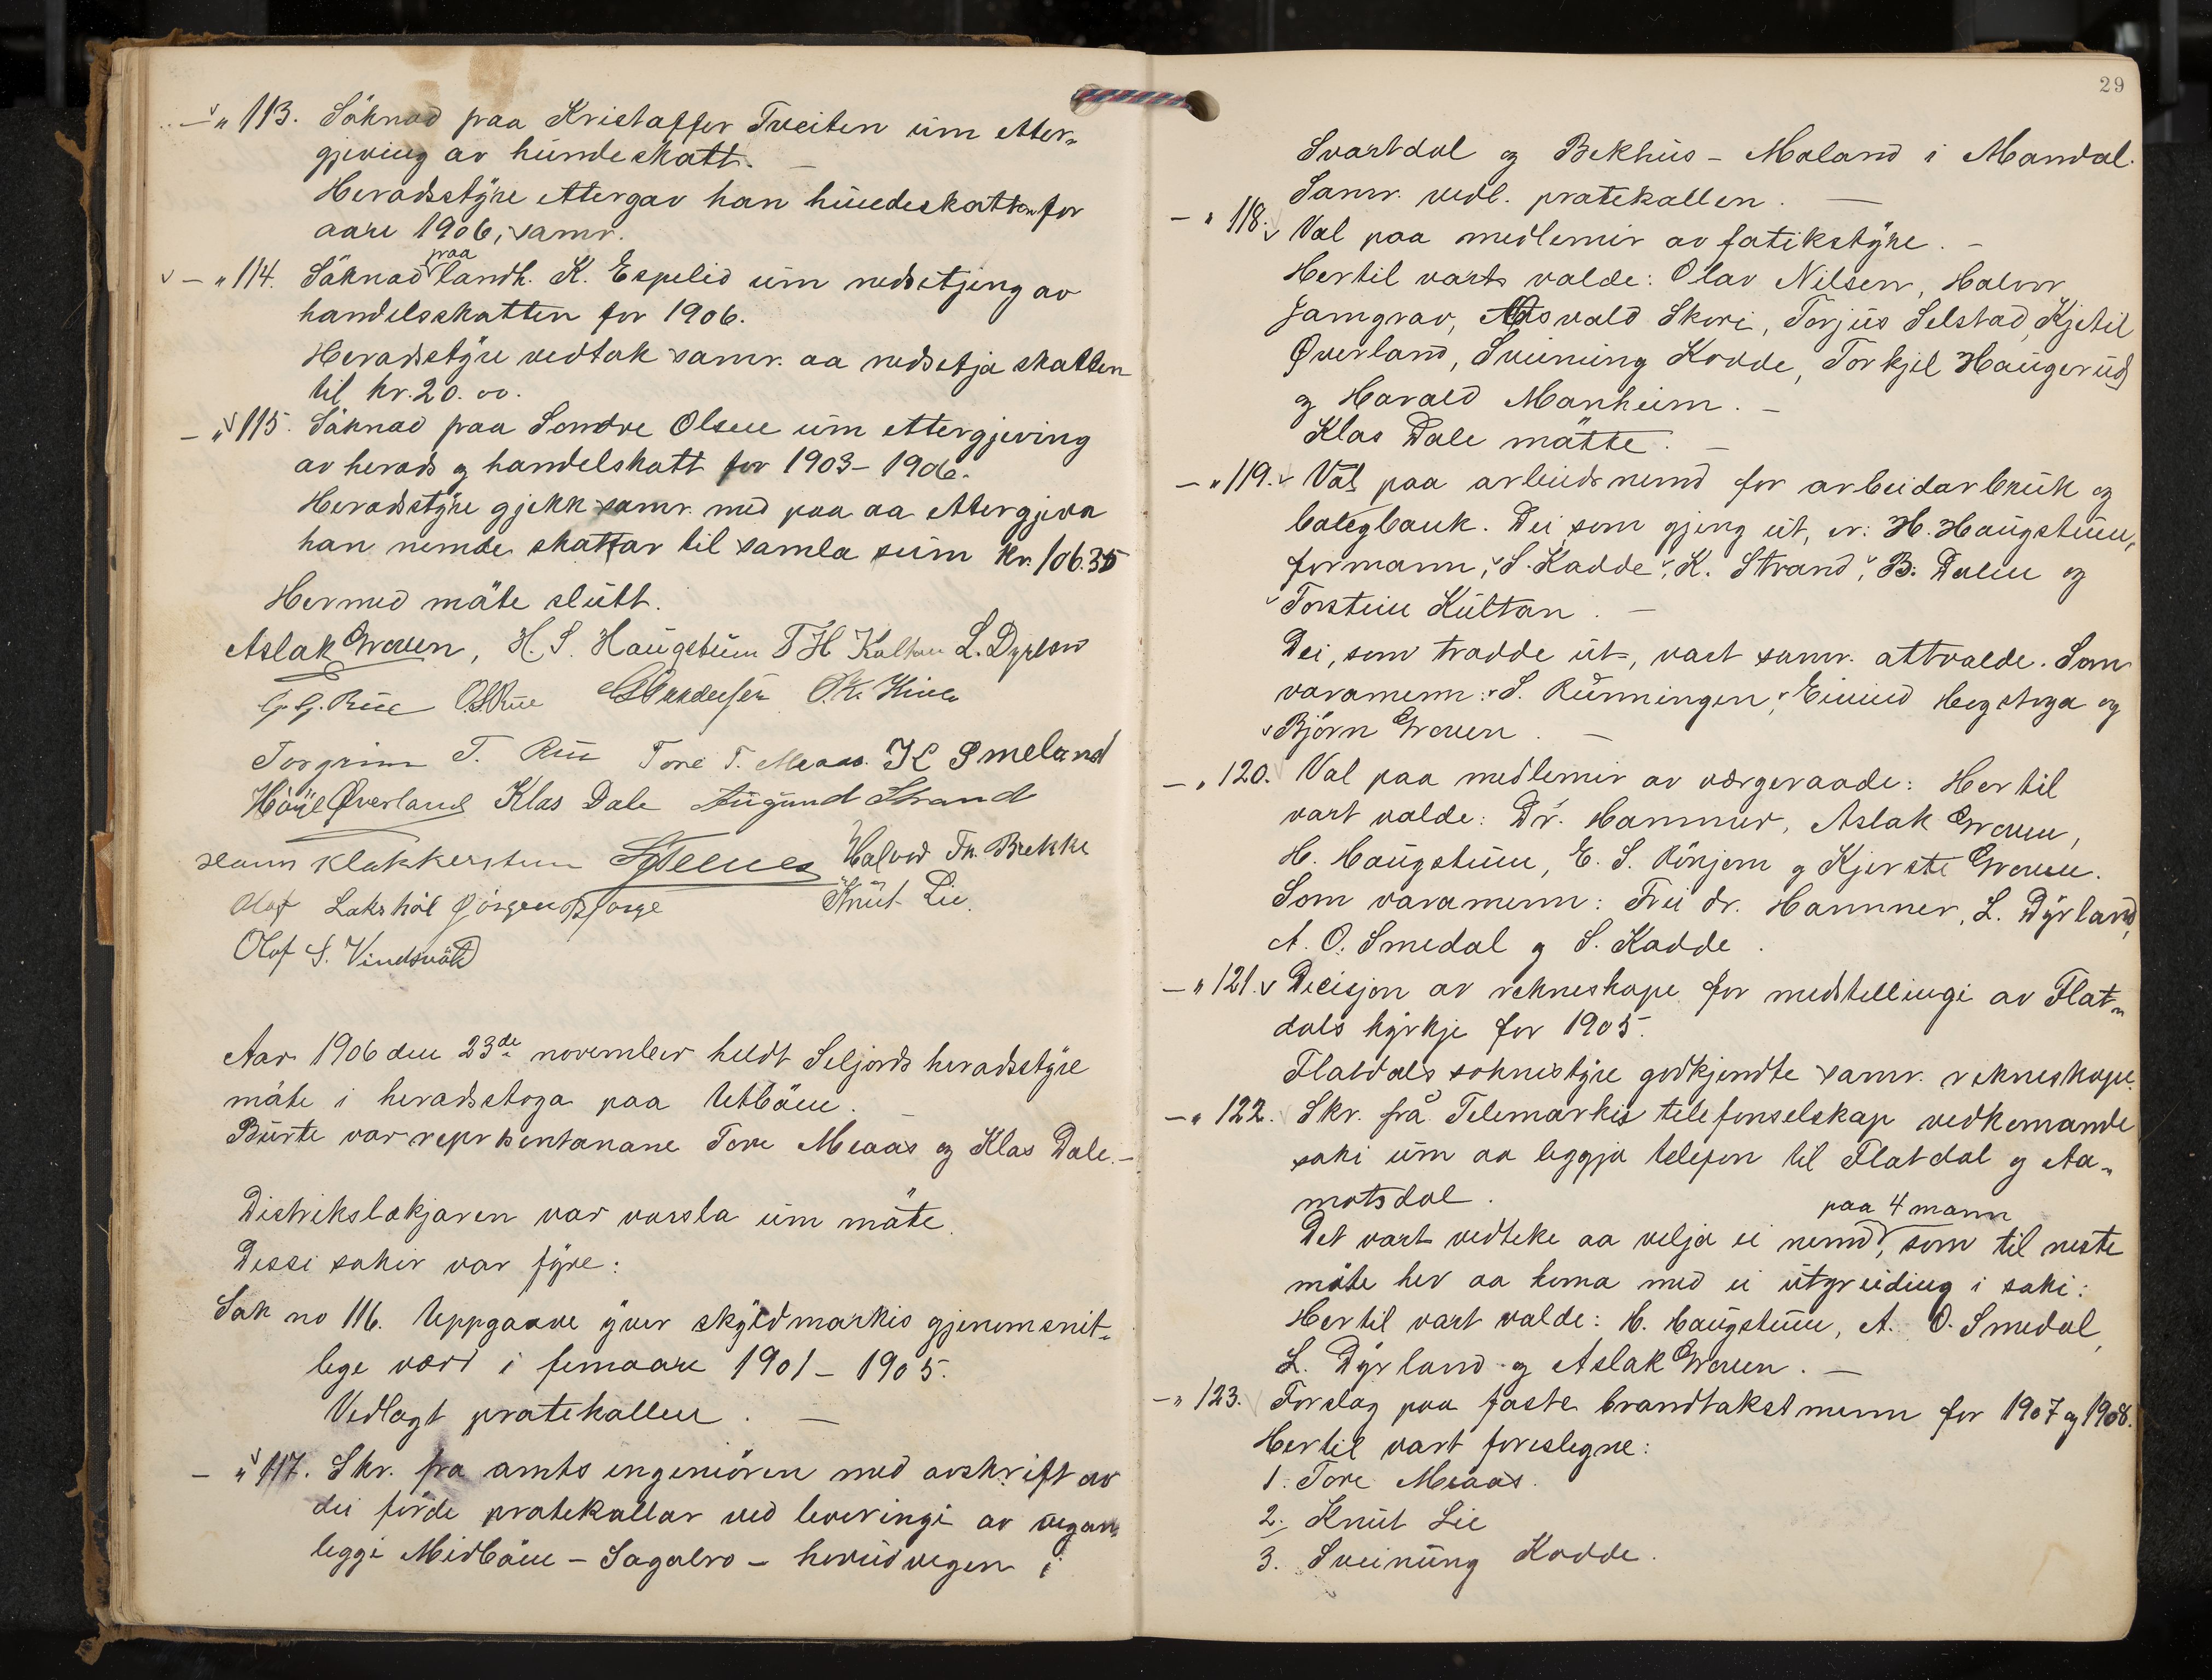 — " 113. Söknad paa Kristaffer Tveiten um etter-
gjeving av hundeskatt. —
Heradsstyre ettergav han hundeskatten for
aare 1906, samr.
— " 114. Söknad paa landh. K. Espelid um nedsetjing av
handelsskatten for 1906.
Heradsstyre vedtok samr. aa nedsetja skatten
til kr. 20.00.
— " 115. Söknad paa Sondre Olsen um ettergjeving
av herads og handelskatt for 1903–1906.
Heradsstyre gjekk samr. med paa aa ettergjeva
han nemde skattar til samla sum kr. 106.35
Hermed möte slutt.
Aslak Groven, H. S. Haugstuen T H Kaltan L. Dyrland
G. G. Rue O. S. Rue O. K.
Torgrim T. Rue Tore T. Meaas. K Smeland
Överland Klas Dale Augund Strand
Klakkerstuen Halvor Th. Brekke
Olaf Lakshöl Jörgen Bjorge Knut Lie
Olaf S. Vindsvåld
Aar 1906 den 23de november heldt Seljords heradsstyre
möte i heradsstoga paa Utböen. —
Burte var reprsentanane Tore Meaas og Klas Dale. —
Distrikslækjaren var varsla um möte.
Dessi sakir var fyre:
Sak no 116. Uppgaave yver skyldmarkis gjenomsnit-
lege værd i femaare 1901–1905.
Vedlagt pratekallen. —
— " 117. Skr. fra amtsingeniören med avskrift av
dei förde pratekallar ved leveringi av vegan-
leggi Midböen – Sagabro – hovudvegen i
29
Svartdal og Bekhus – Moland i Mandal.
Samr. vedl. pratekallen. —
— " 118. Val paa medlemir av fatikstyre. —
Hertil vart valde: Olav Nilsen, Halvor
Jamgrav, Aasvald Skori, Torjus Selstad, Kjetil
Øverland, Sveinung Kodde, Torkjel Haugerud
og Harald Manheim. —
Klas Dale mötte. —
— " 119. Val paa arbeidsnemd for arbeidarbruk og
bolegbank. Dei som gjeng ut, er: H. Haugstuen,
formann, S. Kadde, K. Strand, B. Dalen og
Torstein Kultan. —
Dei, som tradde ut, vart samr. attvalde. Som
varamenn: S. Runningen, Eivind Hegstoga og
Björn Groven. —
— " 120. Val paa medlemir av værgeraade: Hertil
vart valde: Dr. Hammer, Aslak Groven,
H. Haugstuen, E. S. Rönjom og Kjerste Groven.
Som varamenn: Fru dr. Hammer, L. Dyrland,
A. O. Smedal og S. Kadde.
— " 121. Decisjon av rekneskape for medstellingi av Flat-
dals kyrkje for 1905.
Flatdals soknestyre godkjendte samr. rekneskape.
— " 122. Skr. frå Telemarkis telefonselskap vedkomande
saki um aa leggja telefon til Flatdal og Aa-
motsdal.
Det vart vedteke aa velja ei nemd paa 4 mann, som til neste
möte hev aa koma med ei utgreiding i saki:
Hertil vart valde: H. Haugstuen, A. O. Smedal,
L. Dyrland og Aslak Groven. —
— " 123. Forslag paa faste brandtakstmenn for 1907 og 1908.
Hertil vart foreslegne:
1. Tore Meaas.
2. Knut Lie
3. Sveinung Kodde.